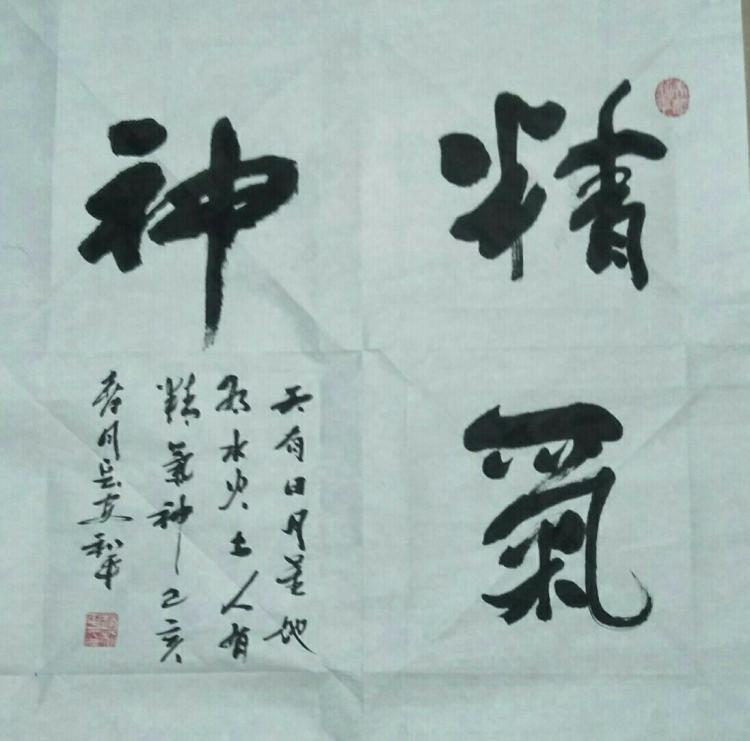 精氣
神
天有日月星地
有水火土人有
精氣神己亥
春月吳友和